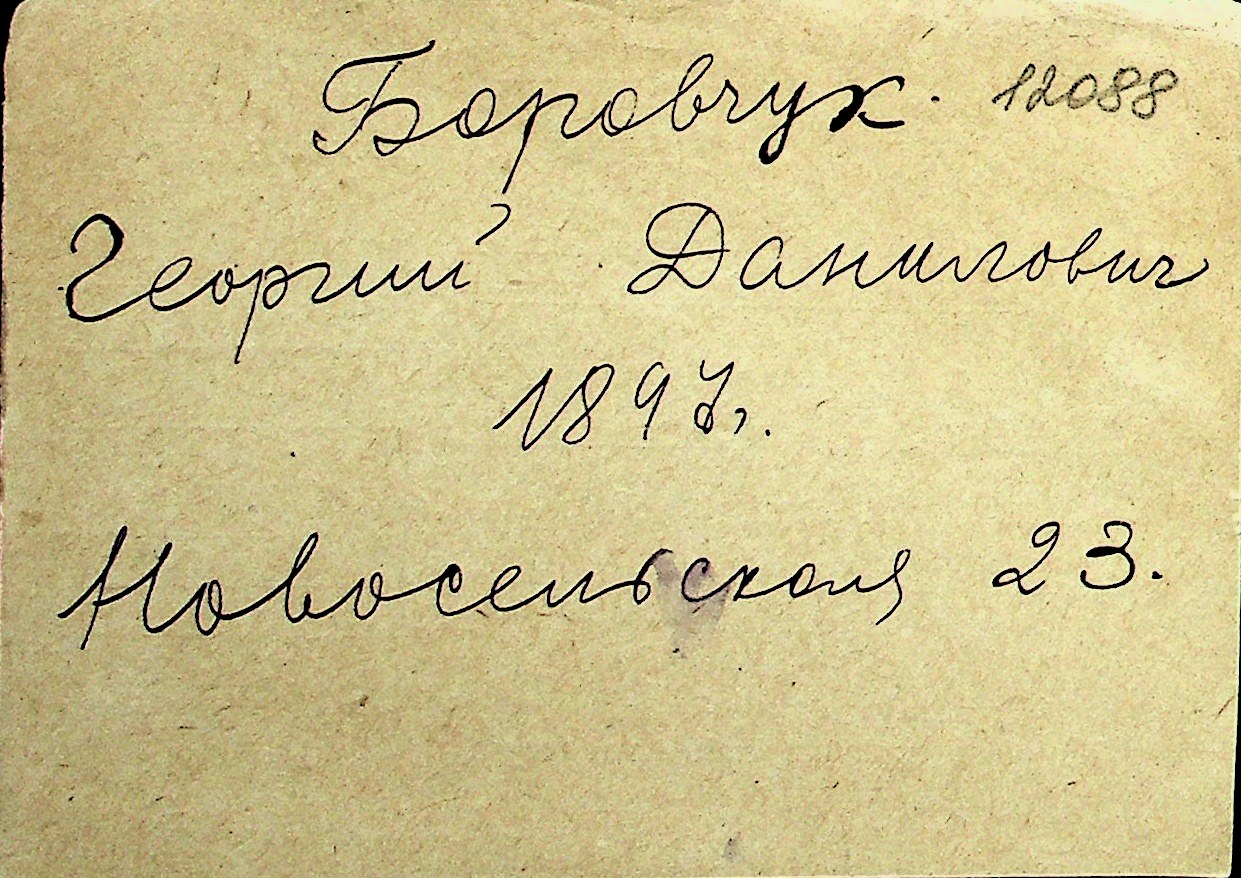 Боровчук. 12088
Георгий Данилович
1897г.
Новосельская 23.